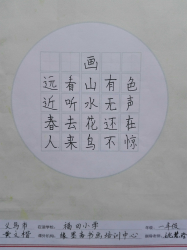 画
远看山有色
近听水无声
春去花还在
人来鸟不惊
义乌市 福田小学 一年级
书画培训中心